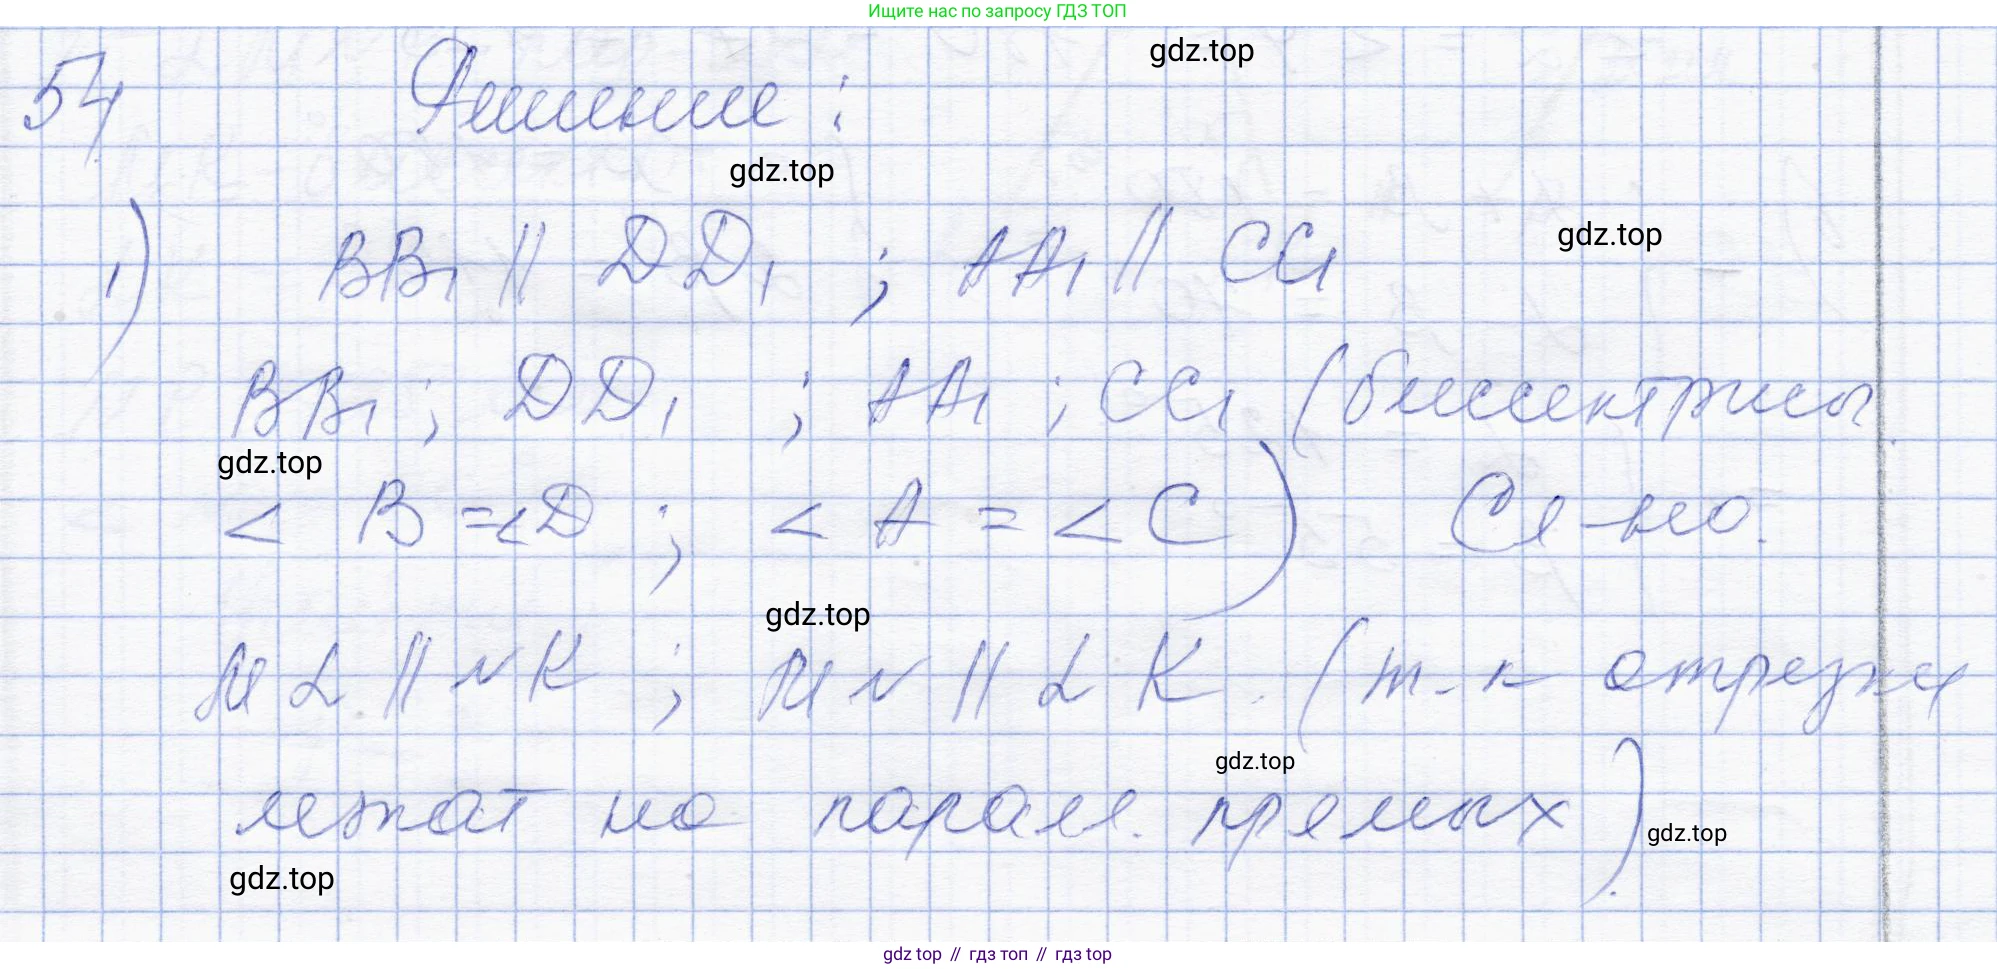 Ищите нас по запросу ГДЗ ТОП
54 Решение:
gdz.top
gdz.top
1) BB₁ || DD₁ ; AA₁ || CC₁
gdz.top
BB₁ ; DD₁ ; AA₁ ; CC₁ (биссектрисы
gdz.top
< B = <D ; < A = < C) Сл-но.
gdz.top
ML || NK ; MN || LK. (т-к отрезки
gdz.top
лежат на парал. прямых).
gdz.top
gdz.top
gdz top // гдз топ // гдз top